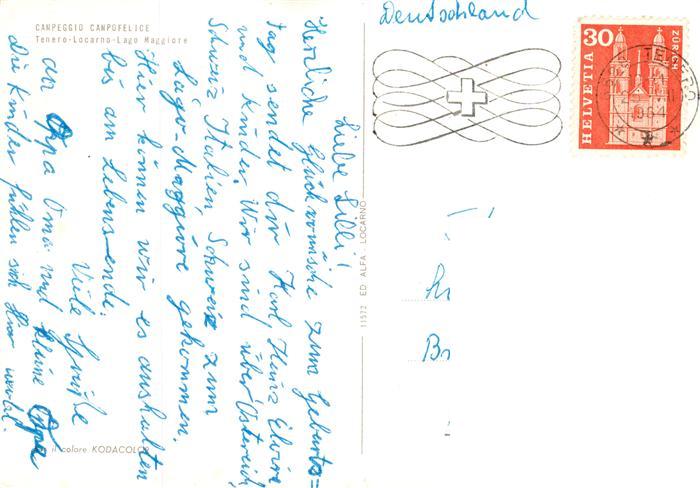 CAMPEGGIO CAMPOFELICE
Tenero-Locarno-Lago Maggiore
Liebe Lilli!
Herzliche Glückwünsche zum Geburts=
tag sendet dir Karl, Heinz Elvira
und Kinder. Wir sind über Östereich
Schweiz Italien, Schweiz zum
Lago-Maggiore gekommen.
Hier können wir es aushalten
bis am Lebensende.
Viele Grüße
an Opa Oma und kleine Opa
die Kinder fühlen sich hier wohl.
il colore KODACOLOR
11572 ED ALFA LOCARNO
Deutschland
30
ZÜRICH
HELVETIA